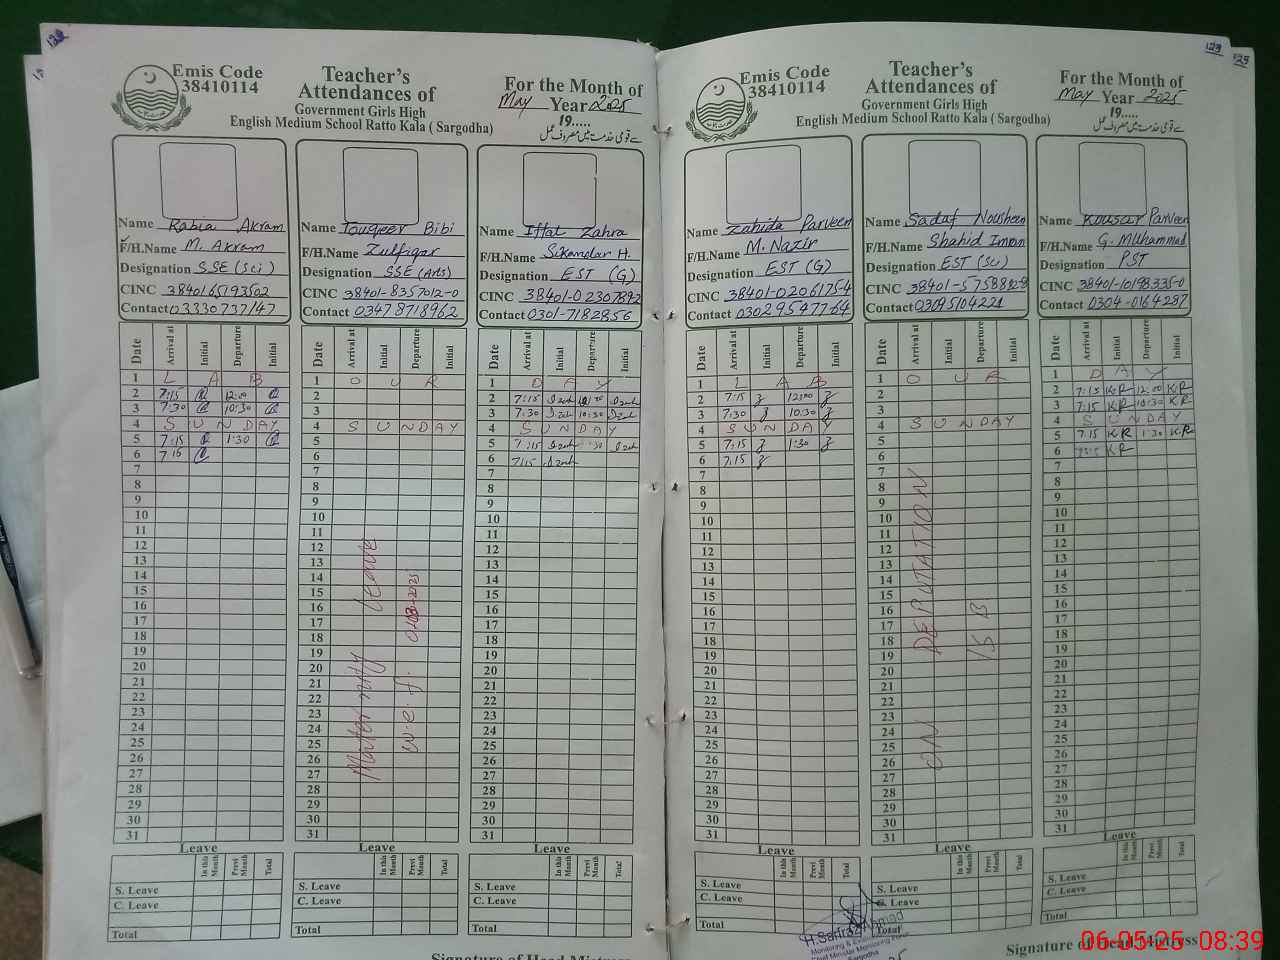 122
Emis Code
38410114
Teacher's
Attendances of
Government Girls High
English Medium School Ratto Kala ( Sargodha)
For the Month of
May Year 2025
19.....
سے قومی خدمت میں مصروف عمل
Name Rabia Akram
F/H.Name M. Akram
Designation SSE (Sci)
CINC 3840165793502
Contact 03330737147
Date Arrival at Initial Departure Initial
1 L A B
2 7:15 12:00
3 7:30 10:30
4 S U N D A Y
5 7:15 1:30
6 7:15
7
8
9
10
11
12
13
14
15
16
17
18
19
20
21
22
23
24
25
26
27
28
29
30
31
Leave
In this Month Previ Month Total
S. Leave
C. Leave
Total
Name Touqeer Bibi
F/H.Name Zulfiqar
Designation SSE (Arts)
CINC 38401-8357012-0
Contact 03478718962
Date Arrival at Initial Departure Initial
1 O U R
2
3
4 S U N D A Y
5
6
7
8
9
10
11
12
13
14
15
16
17
18
19
20
21
22
23
24
25
26
27
28
29
30
31
Maternity leave
w.e.f.
Leave
In this Month Previ Month Total
S. Leave
C. Leave
Total
Name Iffat Zahra
F/H.Name Sikandar H.
Designation EST (G)
CINC 38401-0230789-2
Contact 0301-7182856
Date Arrival at Initial Departure Initial
1 D A Y
2 7:15
3 7:30 10:30
4 S U N D A Y
5 7:15 1:30
6 7:15
7
8
9
10
11
12
13
14
15
16
17
18
19
20
21
22
23
24
25
26
27
28
29
30
31
Leave
In this Month Previ Month Total
S. Leave
C. Leave
Total
Signature of Head Mistress
123
125
Emis Code
38410114
Teacher's
Attendances of
Government Girls High
English Medium School Ratto Kala ( Sargodha)
For the Month of
May Year 2025
19.....
سے قومی خدمت میں مصروف عمل
Name Zahida Parveen
F/H.Name M. Nazir
Designation EST (G)
CINC 38401-0206175-4
Contact 03029547764
Date Arrival at Initial Departure Initial
1 L A B
2 7:15 12:00
3 7:30 10:30
4 S U N D A Y
5 7:15 1:30
6 7:15
7
8
9
10
11
12
13
14
15
16
17
18
19
20
21
22
23
24
25
26
27
28
29
30
31
Leave
In this Month Previ Month Total
S. Leave
C. Leave
Total
H. Sarfraz Ahmad
Sargodha
Name Sadaf Nousheen
F/H.Name Shahid Imran
Designation EST (Sci)
CINC
Contact 03095104221
Date Arrival at Initial Departure Initial
1 O U R
2
3
4 S U N D A Y
5
6
7
8
9
10
11
12
13
14
15
16
17
18
19
20
21
22
23
24
25
26
27
28
29
30
31
ON DEPUTATION
Leave
In this Month Previ Month Total
S. Leave
C. Leave
Total
Name Kousar Parveen
F/H.Name G. Muhammad
Designation PST
CINC 38401-10198335-0
Contact 0304-0164287
Date Arrival at Initial Departure Initial
1 D A Y
2 7:15 K.R 12:00 K.R
3 7:15 K.R 10:30 K.R
4 S U N D A Y
5 7:15 K.R 1:30 K.R
6 7:15 K.R
7
8
9
10
11
12
13
14
15
16
17
18
19
20
21
22
23
24
25
26
27
28
29
30
31
Leave
In this Month Previ Month Total
S. Leave
C. Leave
Total
Signature of Head Mistress
06-05-25 08:39